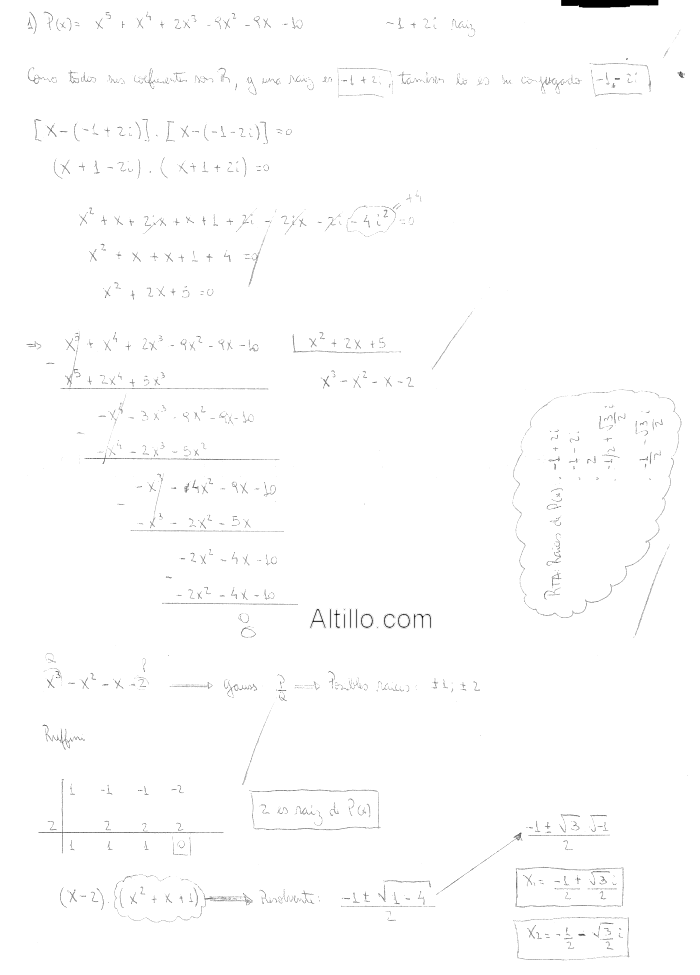 1) P(x) = x⁵ + x⁴ + 2x³ - 9x² - 9x - 10    -1 + 2i raiz
Como todos sus coeficientes son R, y una raiz es -1 + 2i, tambien lo es su conjugado -1 - 2i
[x - (-1 + 2i)] . [x - (-1 - 2i)] = 0
(x + 1 - 2i) . (x + 1 + 2i) = 0
x² + x + 2ix + x + 1 + 2i - 2ix - 2i - 4i² = 0    = +4
x² + x + x + 1 + 4 = 0
x² + 2x + 5 = 0
⇒ x⁵ + x⁴ + 2x³ - 9x² - 9x - 10 | x² + 2x + 5
- x⁵ + 2x⁴ + 5x³    x³ - x² - x - 2
-x⁴ - 3x³ - 9x² - 9x - 10
- -x⁴ - 2x³ - 5x²
-x³ - 4x² - 9x - 10
- -x³ - 2x² - 5x
-2x² - 4x - 10
- -2x² - 4x - 10
0
0
RTA: Raices de P(x): . -1 + 2i
. -1 - 2i
. 2
. -1/2 + √3/2 i
. -1/2 - √3/2 i
Altillo.com
Q    P
x³ - x² - x - 2 ⟹ Gauss P/Q ⟹ Posibles raices: ±1; ±2
Ruffini
1 -1 -1 -2
2    2 2 2
1 1 1 0
2 es raiz de P(x)
(x - 2) . (x² + x + 1) ⟹ Resolvente: (-1 ± √(1 - 4))/2
(-1 ± √3 √-1)/2
x₁ = -1/2 + √3/2 i
x₂ = -1/2 - √3/2 i